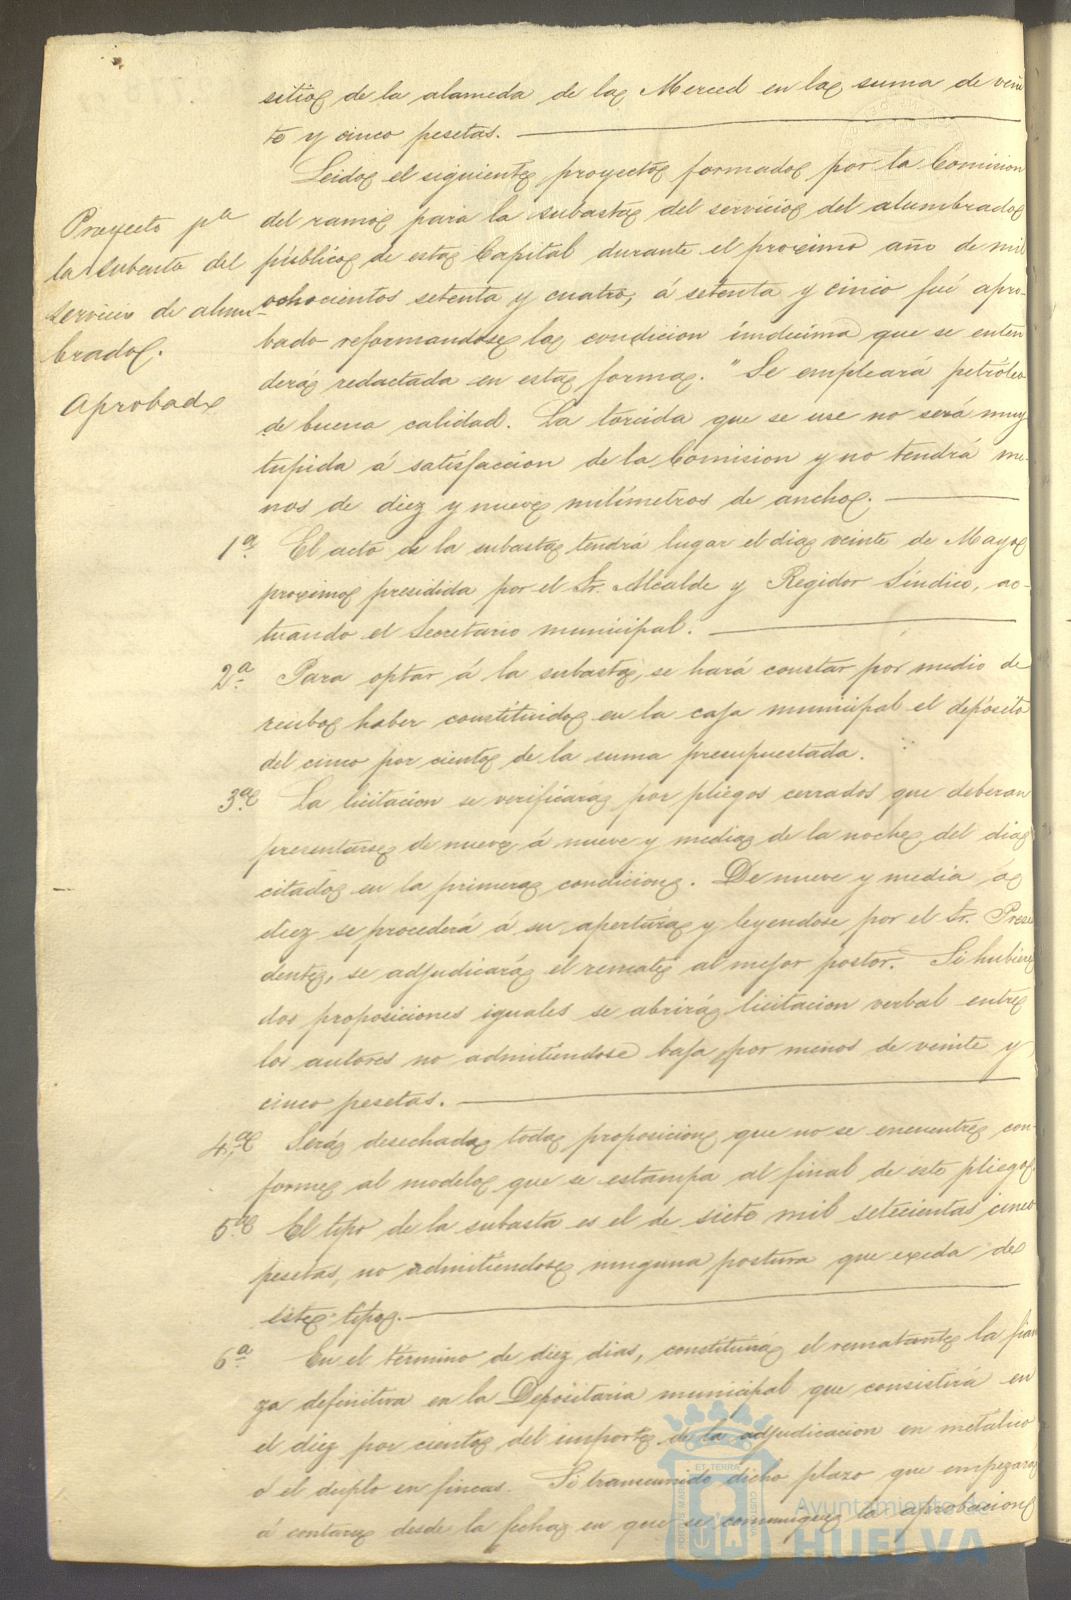 sitio de la alameda de la Merced en la suma de vein
te y cinco pesetas.
Leido el siguiente proyecto formado por la Comision
del ramo para la subasta del servicio del alumbrado
público de esta Capital durante el proximo año de mil
ochocientos setenta y cuatro, á setenta y cinco fué apro-
bado reformandose la condicion undécima que se enten
derá redactada en esta forma. "Se empleará petróleo
de buena calidad. La torcida que se use no será muy
tupida á satisfaccion de la Comision y no tendrá me-
nos de diez y nueve milímetros de ancho.
Proyecto pª
la subasta del
servicio de alum-
brado.
Aprobado
1ª El acto de la subasta tendrá lugar el dia veinte de Mayo
proximo presidida por el Sr. Alcalde y Regidor Síndico, ac-
tuando el Secretario municipal.
2ª Para optar á la subasta, se hará constar por medio de
recibo haber constituido en la caja municipal el depósito
del cinco por ciento de la suma presupuestada.
3ª La licitacion se verificará por pliegos cerrados que deberan
presentarse de nueve á nueve y media de la noche del dia
citado en la primera condicion. De nueve y media á
diez se procederá á su apertura y leyendose por el Sr. Presi
dente, se adjudicará el remate al mejor postor. Si hubiere
dos proposiciones iguales se abrirá licitacion verbal entre
los autores no admitiéndose baja por menos de veinte y
cinco pesetas.
4ª Será desechada toda proposicion que no se encuentre con-
forme al modelo que se estampa al final de este pliego.
5ª El tipo de la subasta es el de siete mil setecientas cinco
pesetas, no admitiéndose ninguna postura que exceda de
éste tipo.
6ª En el término de diez dias, constituirá el rematante la fian
za definitiva en la Depositaria municipal que consistirá en
el diez por ciento del importe de la adjudicacion en metálico
o el duplo en fincas. Si transcurrido dicho plazo que empezará
á contarse desde la fecha en que se comunique la aprobacion
ET TERRA
Ayuntamiento de
HUELVA